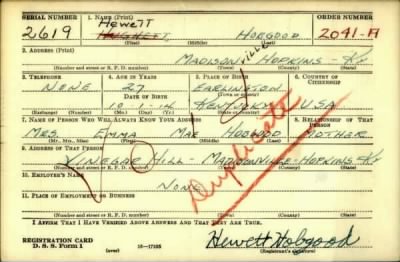 SERIAL NUMBER 1. NAME (Print) ORDER NUMBER
Hewett
2619 Hughett Hobgood 2041-A
(First) (Middle) (Last)
2. ADDRESS (Print)
Madisonville Hopkins - Ky
(Number and street or R. F. D. number) (Town) (County) (State)
3. TELEPHONE 4. AGE IN YEARS 5. PLACE OF BIRTH 6. COUNTRY OF CITIZENSHIP
None 27 Earlington
DATE OF BIRTH (Town or county)
10-1-14 Kentucky USA
(Mo.) (Day) (Yr.) (State or country)
7. NAME OF PERSON WHO WILL ALWAYS KNOW YOUR ADDRESS 8. RELATIONSHIP OF THAT PERSON
Mrs. Emma Mae Hobgood Mother
(Mr., Mrs., Miss) (First) (Middle) (Last)
9. ADDRESS OF THAT PERSON
Vinegar Hill - Madisonville - Hopkins - Ky
(Number and street or R. F. D. number) (Town) (County) (State)
10. EMPLOYER'S NAME
None
11. PLACE OF EMPLOYMENT OR BUSINESS
Duplicate
(Number and street or R. F. D. number) (Town) (County) (State)
I AFFIRM THAT I HAVE VERIFIED ABOVE ANSWERS AND THAT THEY ARE TRUE.
REGISTRATION CARD
D. S. S. FORM 1 (over) 16-17105 Hewett Hobgood
(Registrant's signature)